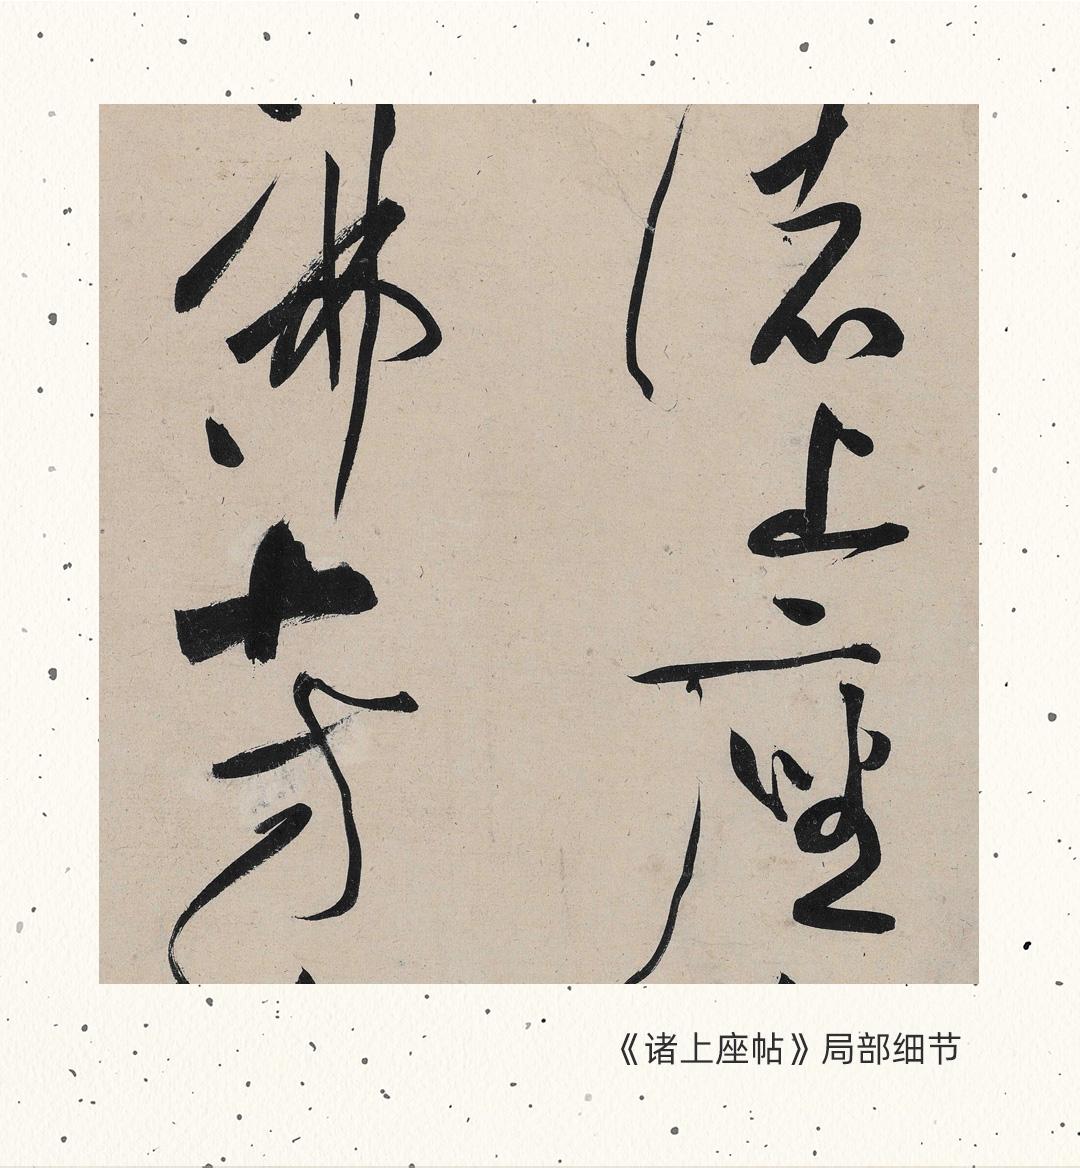 諸上座
佛
《诸上座帖》局部细节